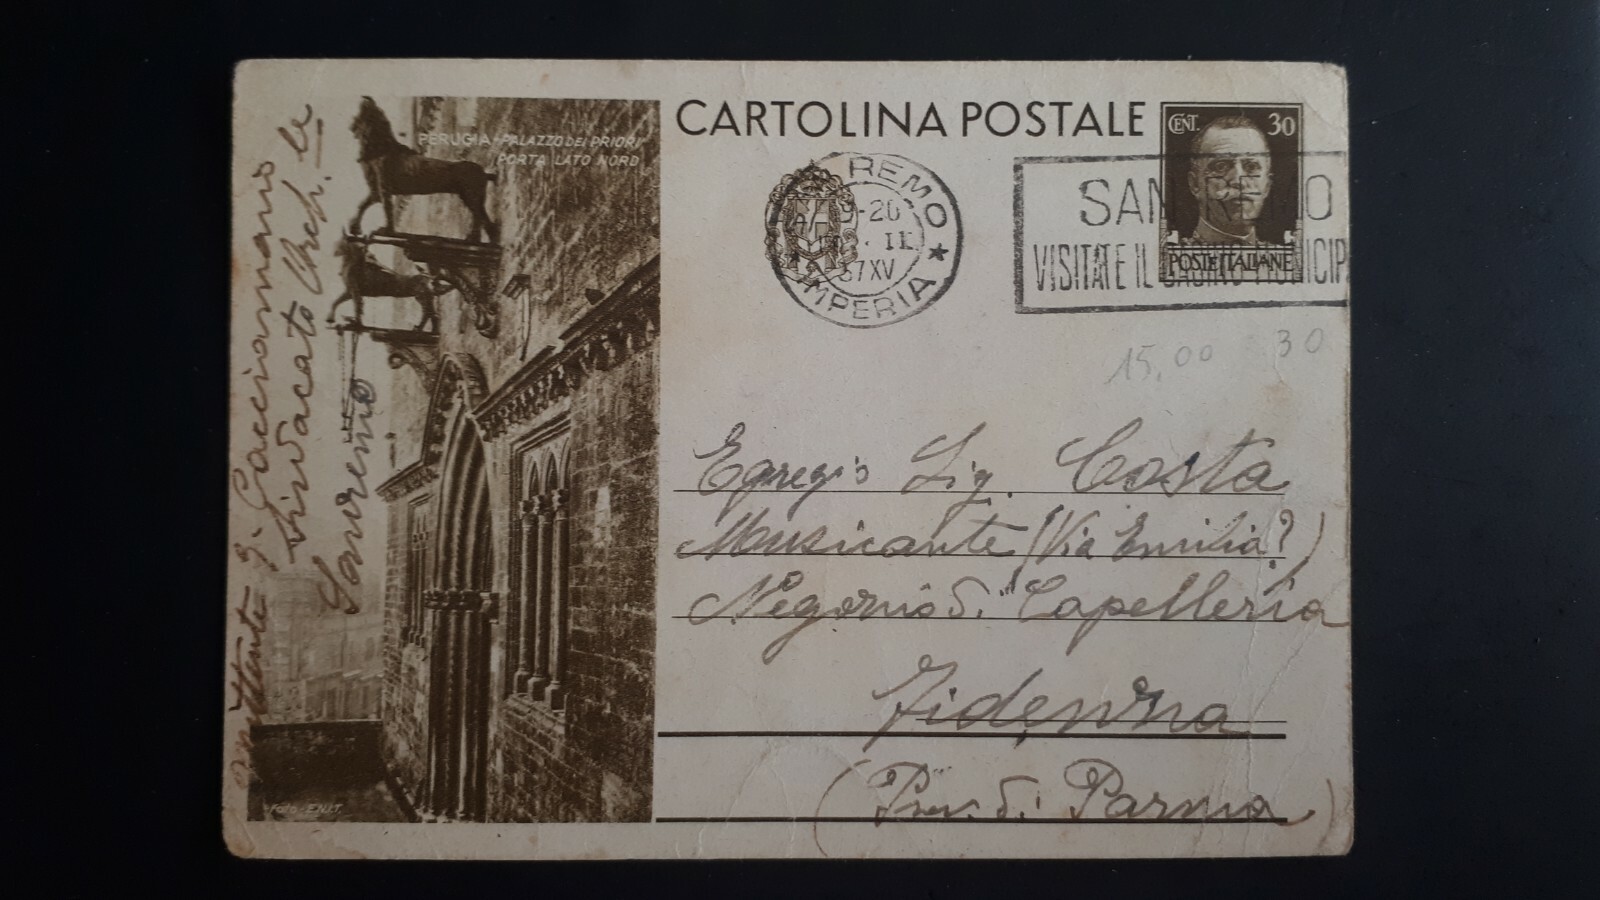 CARTOLINA POSTALE
CENT. 30
POSTE ITALIANE
PERUGIA - PALAZZO DEI PRIORI
PORTA LATO NORD
REMO
9-20
II
37 XV
IMPERIA
SAN REMO
VISITATE IL CASINO MUNICIP
15,00 30
Egregio Sig. Costa
Musicante (Via Emilia?)
Negozio di Capelleria
Fidenza
(Prov. di Parma)
mittente G.
Sindacato Arch.
Sanremo
Foto - E.N.I.T.